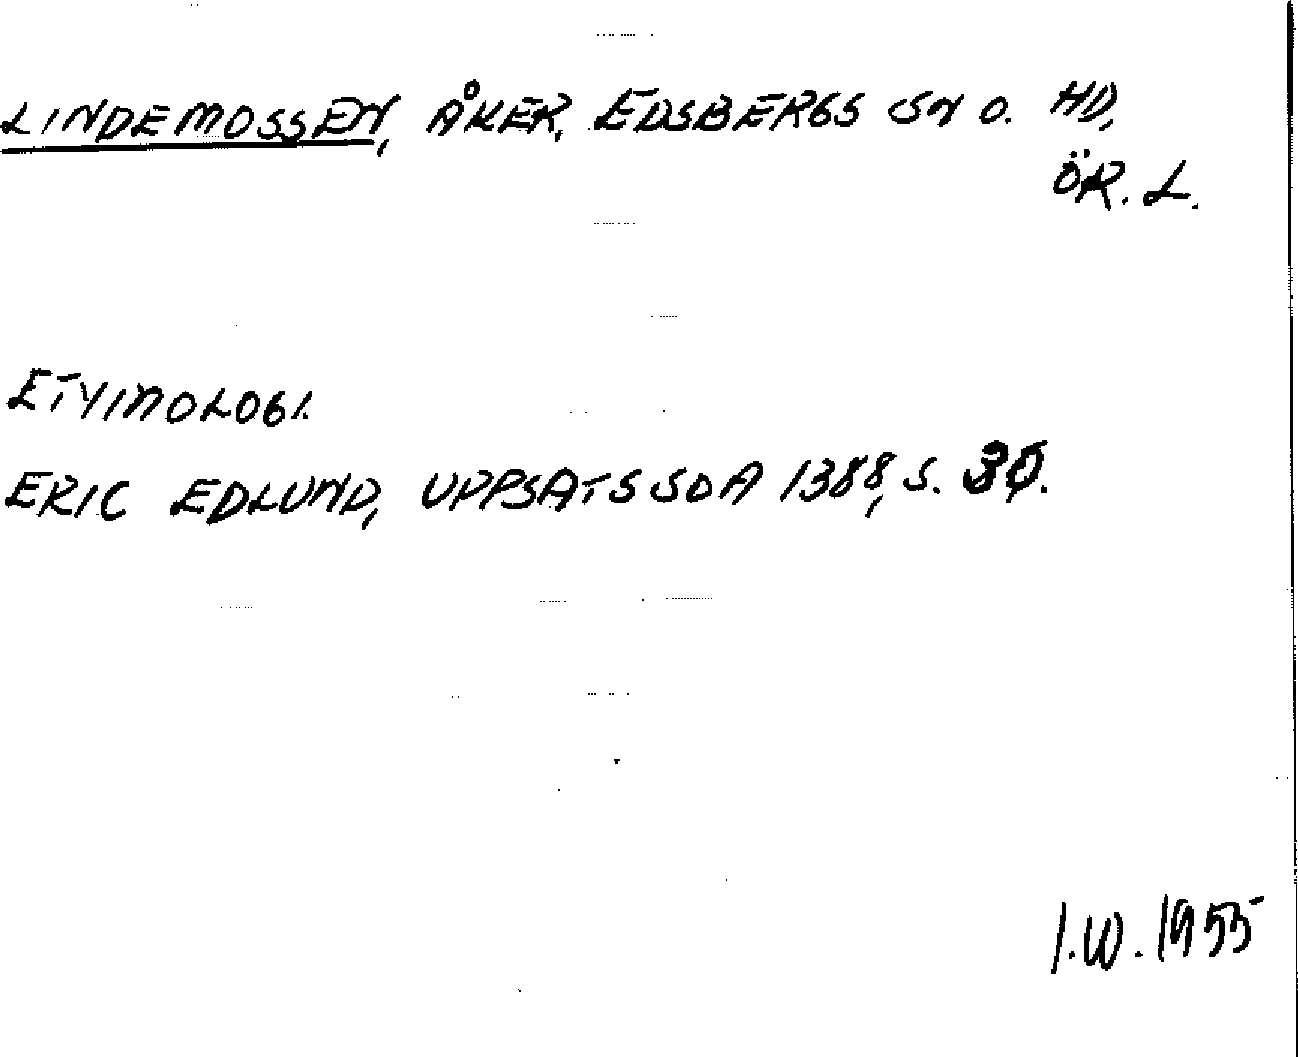 LINDEMOSSEN, ÅKER, EDSBERGS SN O. HD,
ÖR. L.
ETYMOLOGI.
ERIC EDLUND, UPPSATS SOA 1388, S.
I.W. 1955